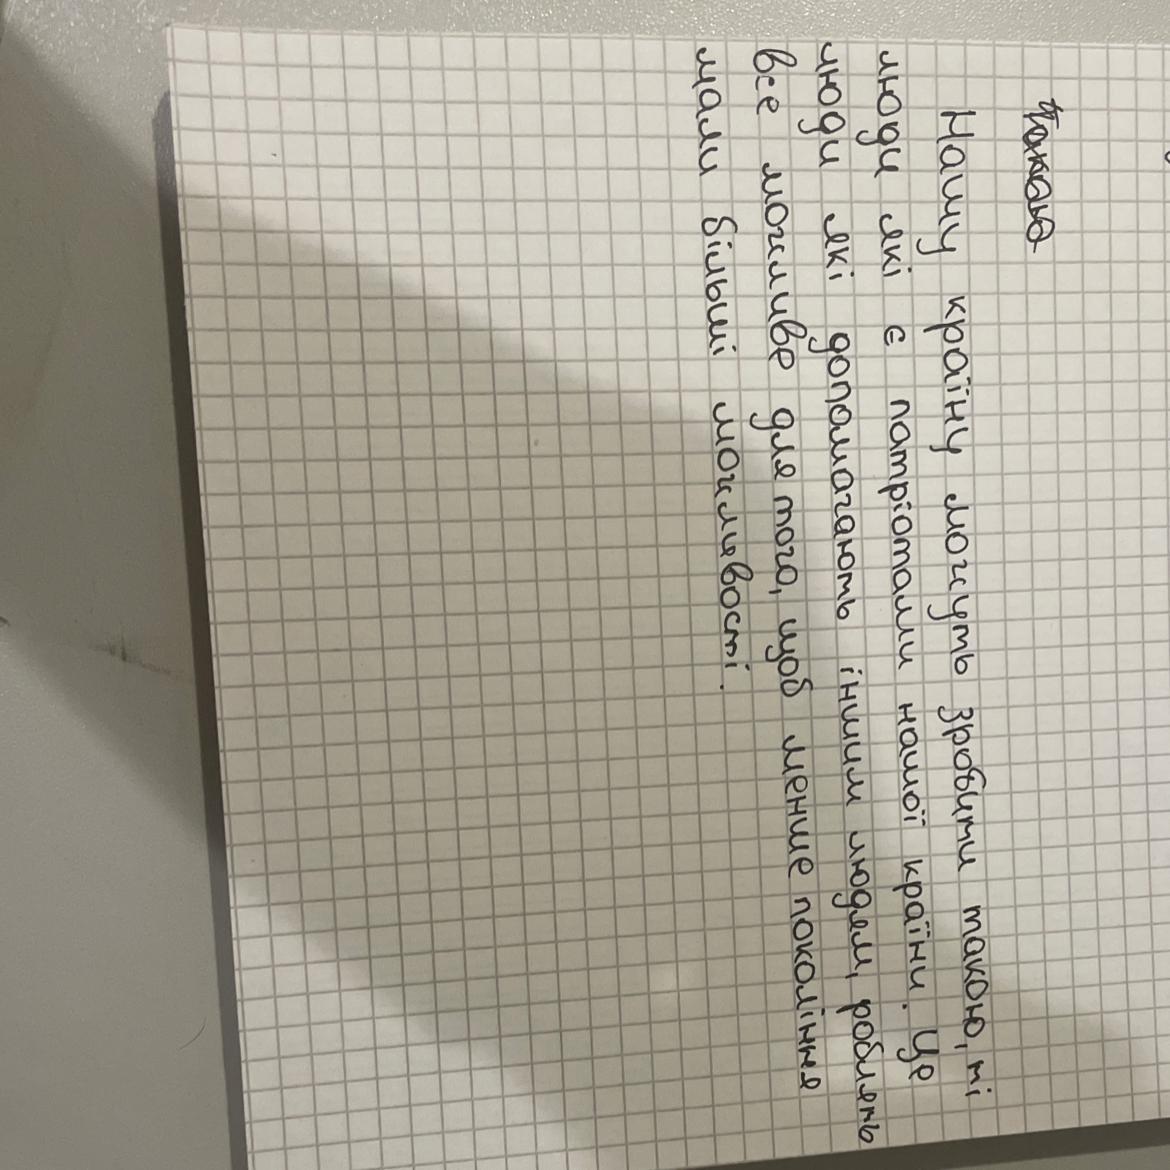 Нашу країну можуть зробити такою, ті
люди які є патріотами нашої країни. Це
люди які допомагають іншим людям, роблять
все можливе для того, щоб менше покоління
мали більші можливості.